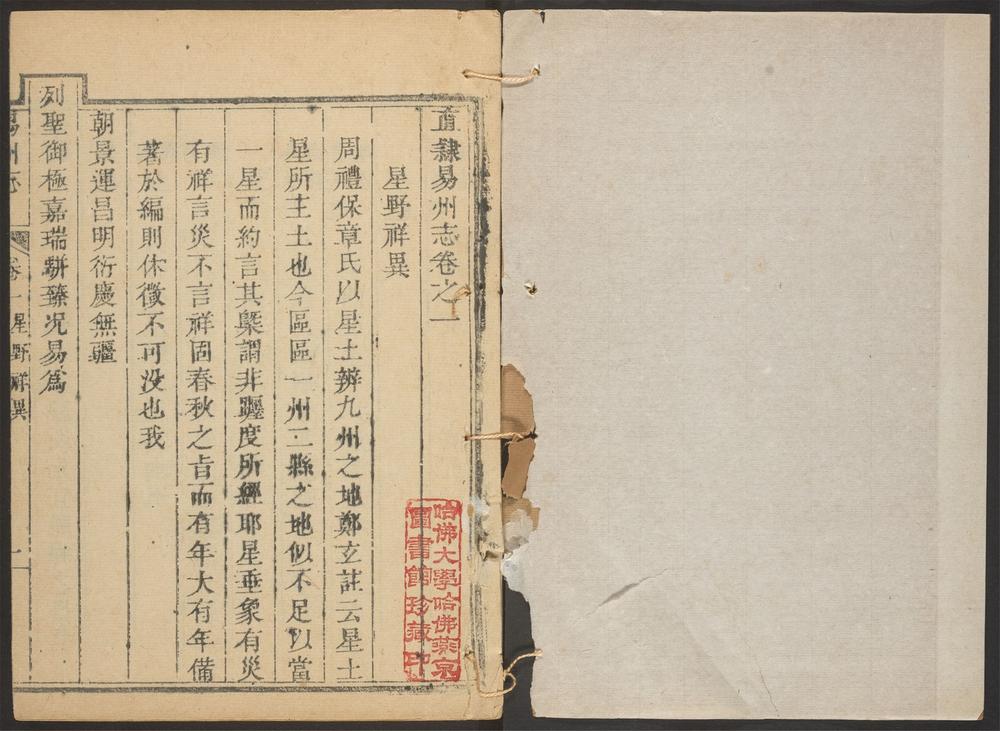 直隸易州志卷之一
星野祥異
周禮保章氏以星土辨九州之地鄭玄註云星土
星所主土也今區區一州二縣之地似不足以當
一星而約言其槩謂非躔度所經耶星垂象有災
有祥言災不言祥固春秋之旨而有年大有年備
著於編則休徵不可没也我
朝景運昌明衍慶無疆
列聖御極嘉瑞駢臻况易爲
易州志
卷一星野祥異
一
哈佛大學哈佛燕京
圖書館珍藏印